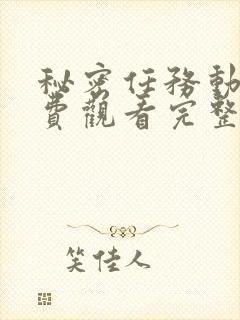 秘密任務動
費觀看完整
笑佳人